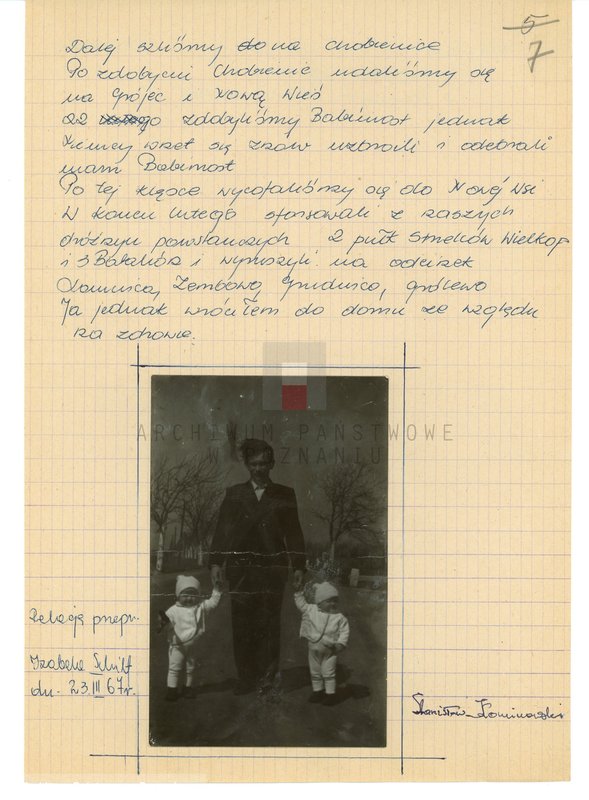 5
7
Dalej szliśmy do na chobienice
Po zdobyciu Chobienic udaliśmy się
na Grójec i Nową Wieś
22 zdobyliśmy Babimost jednak
Niemcy wnet się znów uzbroili i odebrali
nam Babimost
Po tej klęsce wycofaliśmy się do Nowej Wsi
W końcu lutego sformowali z naszych
dróżzyn powstańczych 2 pułk Strzelców Wielkop
i 3 Batalion i wyruszyli na odcinek
Łomnica, Zembowo, Grudnica, Grólewo
Ja jednak wróciłem do domu ze względu
na zdrowie.
ARCHIWUM PAŃSTWOWE
W POZNANIU
Relację przepr.
Izabela
dn. 23 III 67r.
Stanisław Kominowski